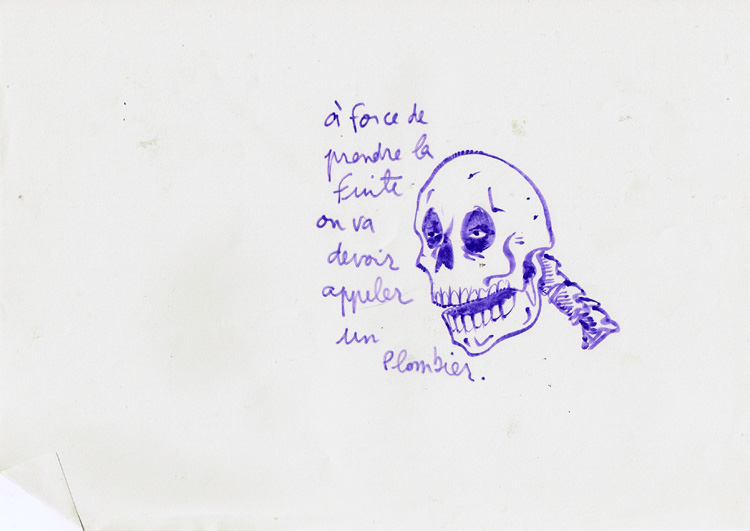 à force de
prendre la
fuite
on va
devoir
appeler
un
Plombier.